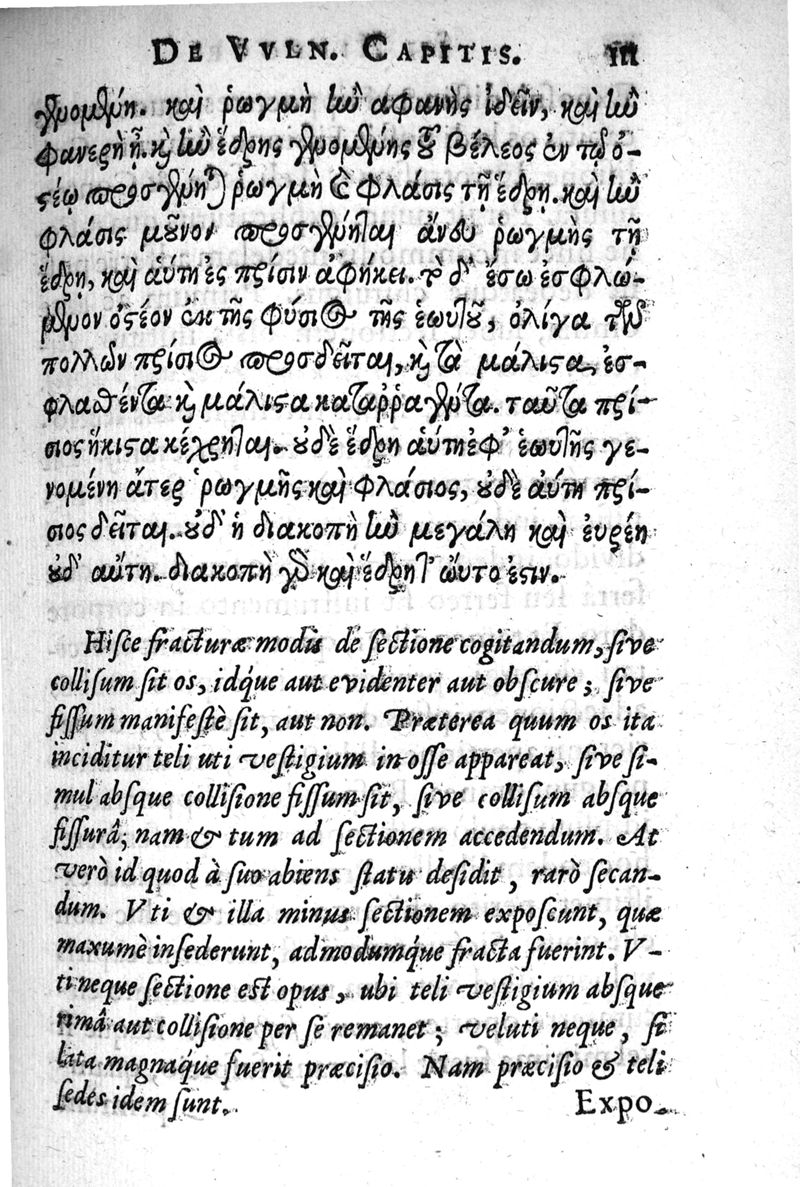 DE VVLN. CAPITIS. 111
γενομένη. καὶ ῥωγμὴ ἢν ἀφανὴς ἰδεῖν, καὶ ἢν
φανερὴ ᾖ. κỳ ἢν ἕδρης γενομένης τοῦ βέλεος ἐν τῷ ὀ-
στέῳ προσγένηται ῥωγμὴ καὶ φλάσις τῇ ἕδρῃ. καὶ ἢν
φλάσις μοῦνον προσγένηται ἄνευ ῥωγμῆς τῇ
ἕδρῃ, καὶ αὕτη ἐς πρίσιν ἀφήκει. τὸ δ' ἔσω ἐσφλώ-
μενον ὀστέον ἐκ τῆς φύσιος τῆς ἑωυτοῦ, ὀλίγα τῶν
πολλῶν πρίσιος προσδεῖται, καὶ τὰ μάλιστα ἐσ-
φλασθέντα καὶ μάλιστα καταῤῥαγέντα. ταῦτα πρί-
σιος ἥκιστα κέχρηται. οὐδὲ ἕδρη αὕτη ἐφ' ἑωυτῆς γε-
νομένη ἄτερ ῥωγμῆς καὶ φλάσιος, οὐδὲ αὕτη πρί-
σιος δεῖται. οὐδ' ἡ διακοπὴ ἢν μεγάλη καὶ εὐρέη
οὐδ' αὕτη. διακοπὴ γὰρ καὶ ἕδρη τ' ὠυτό ἐστιν.
Hisce fracturæ modis de sectione cogitandum, sive
collisum sit os, idq́ue aut evidenter aut obscure; sive
fissum manifestè sit, aut non. Præterea quum os ita
inciditur teli uti vestigium in osse appareat, sive si-
mul absque collisione fissum sit, sive collisum absque
fissurâ; nam & tum ad sectionem accedendum. At
verò id quod à suo abiens statu desidit, rarò secan-
dum. Vti & illa minus sectionem exposcunt, quæ
maxumè insederunt, admodumq́ue fracta fuerint. V-
ti neque sectione est opus, ubi teli vestigium absque
rimâ aut collisione per se remanet; veluti neque, si
lata magnaq́ue fuerit præcisio. Nam præcisio & teli
sedes idem sunt.
Expo-